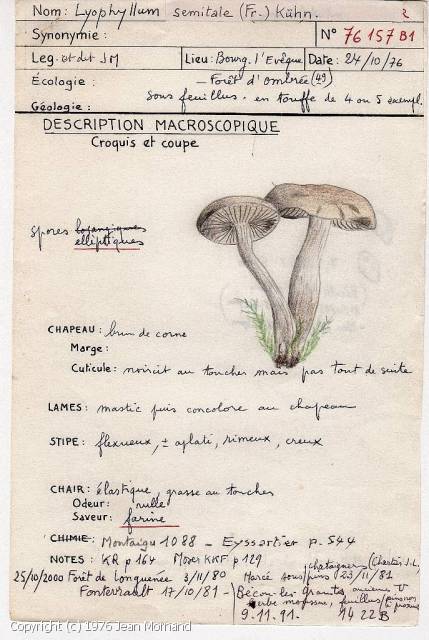 Nom: Lyophyllum semitale (Fr.) Kühn.
Synonymie: N° 76 157 B1
Leg. et det JM Lieu: Bourg. l'Evêque Date: 24/10/76
Écologie: - Forêt d'Ombrée (49)
sous feuillus. en touffe de 4 ou 5 exempl.
Géologie:
DESCRIPTION MACROSCOPIQUE
Croquis et coupe
spores losangiques
elliptiques
CHAPEAU: brun de corne
Marge:
Cuticule: noircit au toucher mais pas tout de suite
LAMES: mastic puis concolore au chapeau
STIPE: flexueux, ± aplati, rimeux, creux
CHAIR: élastique, grasse au toucher
Odeur: nulle
Saveur: farine
CHIMIE: Montaigu 1088 - Eyssartier p. 544
NOTES: KR p 164 Moser KKF p 129
25/10/2000 Forêt de Longuenée 3/11/80
Marcé sous pins 23/11/81
chataigners (Chastés J.L,
Fonterrault 17/10/81 -
Bécon-les-Granits, anciennes
herbe mousse, feuillus/pins
9.11.91. 1422B
Copyright (c) 1976 Jean Mornand